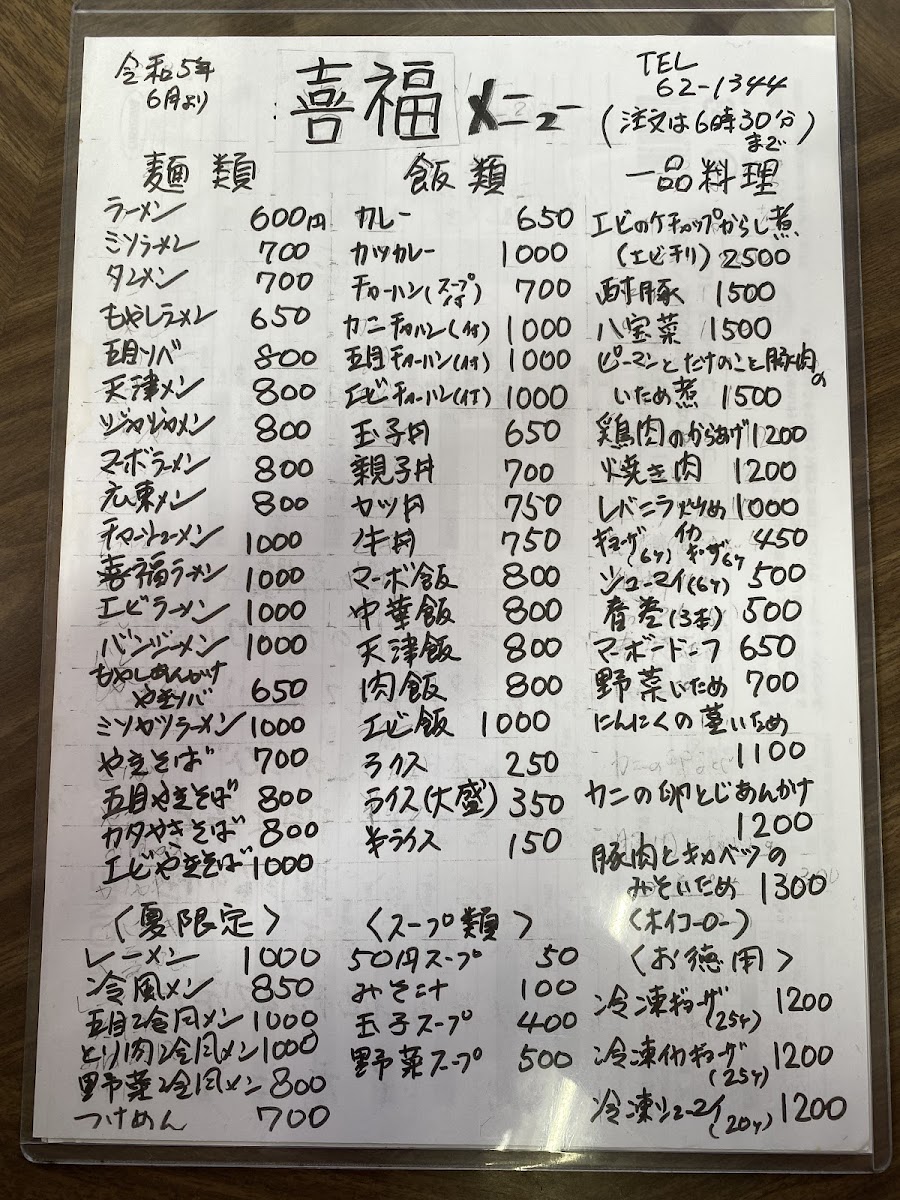 令和5年
6月より
喜福 メニュー
TEL
62-1344
(注文は6時30分
まで)
麺類
ラーメン 600円
ミソラーメン 700
タンメン 700
もやしラーメン 650
五目ソバ 800
天津メン 800
ジャージャーメン 800
マーボラーメン 800
広東メン 800
チャーシューメン 1000
喜福ラーメン 1000
エビラーメン 1000
バンジーメン 1000
もやしあんかけ
やきソバ 650
ミソカツラーメン 1000
やきそば 700
五目やきそば 800
カタやきそば 800
エビやきそば 1000
〈夏限定〉
レーメン 1000
冷風メン 850
五目冷風メン 1000
とり肉冷風メン 1000
野菜冷風メン 800
つけめん 700
飯類
カレー 650
カツカレー 1000
チャーハン(スープ付) 700
カニチャーハン(付) 1000
五目チャーハン(付) 1000
エビチャーハン(付) 1000
玉子丼 650
親子丼 700
カツ丼 750
牛丼 750
マーボ飯 800
中華飯 800
天津飯 800
肉飯 800
エビ飯 1000
ライス 250
ライス(大盛) 350
半ライス 150
〈スープ類〉
50円スープ 50
みそ汁 100
玉子スープ 400
野菜スープ 500
一品料理
エビのケチャップからし煮
(エビチリ) 2500
酢豚 1500
八宝菜 1500
ピーマンとたけのこと豚肉の
いため煮 1500
鶏肉のからあげ 1200
焼き肉 1200
レバニラ炒め 1000
ギョーザ(6ケ) イカギョーザ6ケ 450
シューマイ(6ケ) 500
春巻(3本) 500
マーボードーフ 650
野菜いため 700
にんにくの茎いため
1100
カニの卵とじあんかけ
1200
豚肉とキャベツの
みそいため 1300
(ホイコーロー)
〈お徳用〉
冷凍ギョーザ(25ケ) 1200
冷凍イカギョーザ(25ケ) 1200
冷凍シューマイ(20ケ) 1200